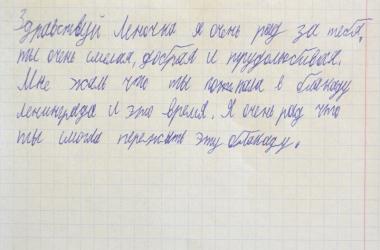 Здравствуй Леночка я очень рад за тебя,
ты очень смелая, добрая и трудолюбивая.
Мне жаль что ты пожирала в блокаду
ленинграда и это время. Я очень рад что
ты смогла пережить эту блокаду.